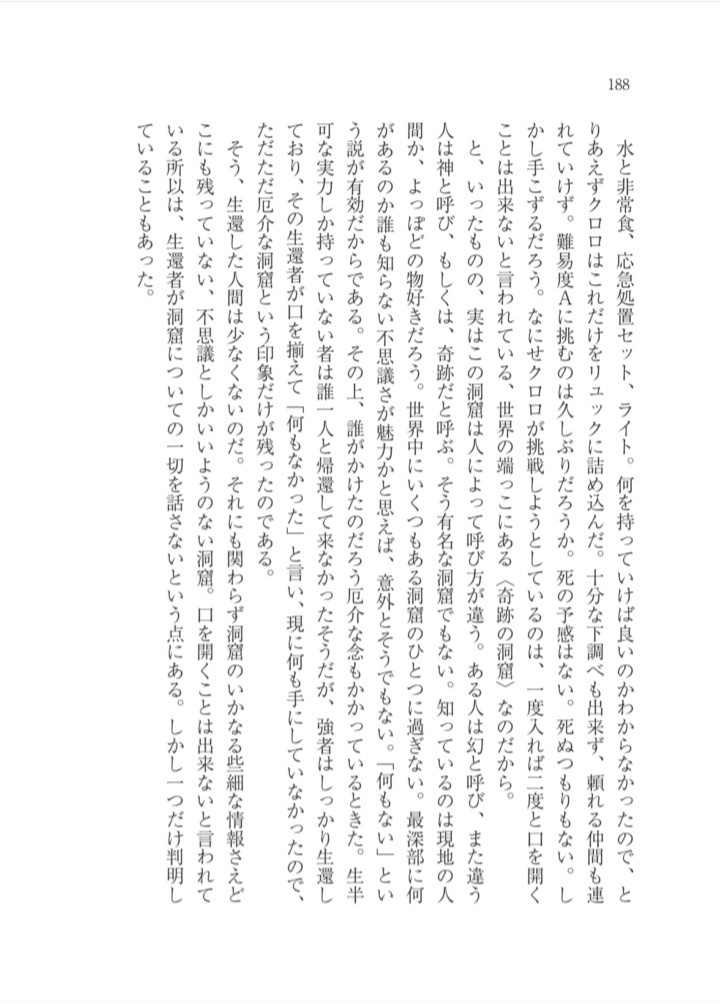 188
水と非常食、応急処置セット、ライト。何を持っていけば良いのかわからなかったので、と
りあえずクロロはこれだけをリュックに詰め込んだ。十分な下調べも出来ず、頼れる仲間も連
れていけず。難易度Aに挑むのは久しぶりだろうか。死の予感はない。死ぬつもりもない。し
かし手こずるだろう。なにせクロロが挑戦しようとしているのは、一度入れば二度と口を開く
ことは出来ないと言われている、世界の端っこにある〈奇跡の洞窟〉なのだから。
と、いったものの、実はこの洞窟は人によって呼び方が違う。ある人は幻と呼び、また違う
人は神と呼び、もしくは、奇跡だと呼ぶ。そう有名な洞窟でもない。知っているのは現地の人
間か、よっぽどの物好きだろう。世界中にいくつもある洞窟のひとつに過ぎない。最深部に何
があるのか誰も知らない不思議さが魅力かと思えば、意外とそうでもない。「何もない」とい
う説が有効だからである。その上、誰がかけたのだろう厄介な念もかかっているときた。生半
可な実力しか持っていない者は誰一人と帰還して来なかったそうだが、強者はしっかり生還し
ており、その生還者が口を揃えて「何もなかった」と言い、現に何も手にしていなかったので、
ただただ厄介な洞窟という印象だけが残ったのである。
そう、生還した人間は少なくないのだ。それにも関わらず洞窟のいかなる些細な情報さえど
こにも残っていない、不思議としかいいようのない洞窟。口を開くことは出来ないと言われて
いる所以は、生還者が洞窟についての一切を話さないという点にある。しかし一つだけ判明し
ていることもあった。